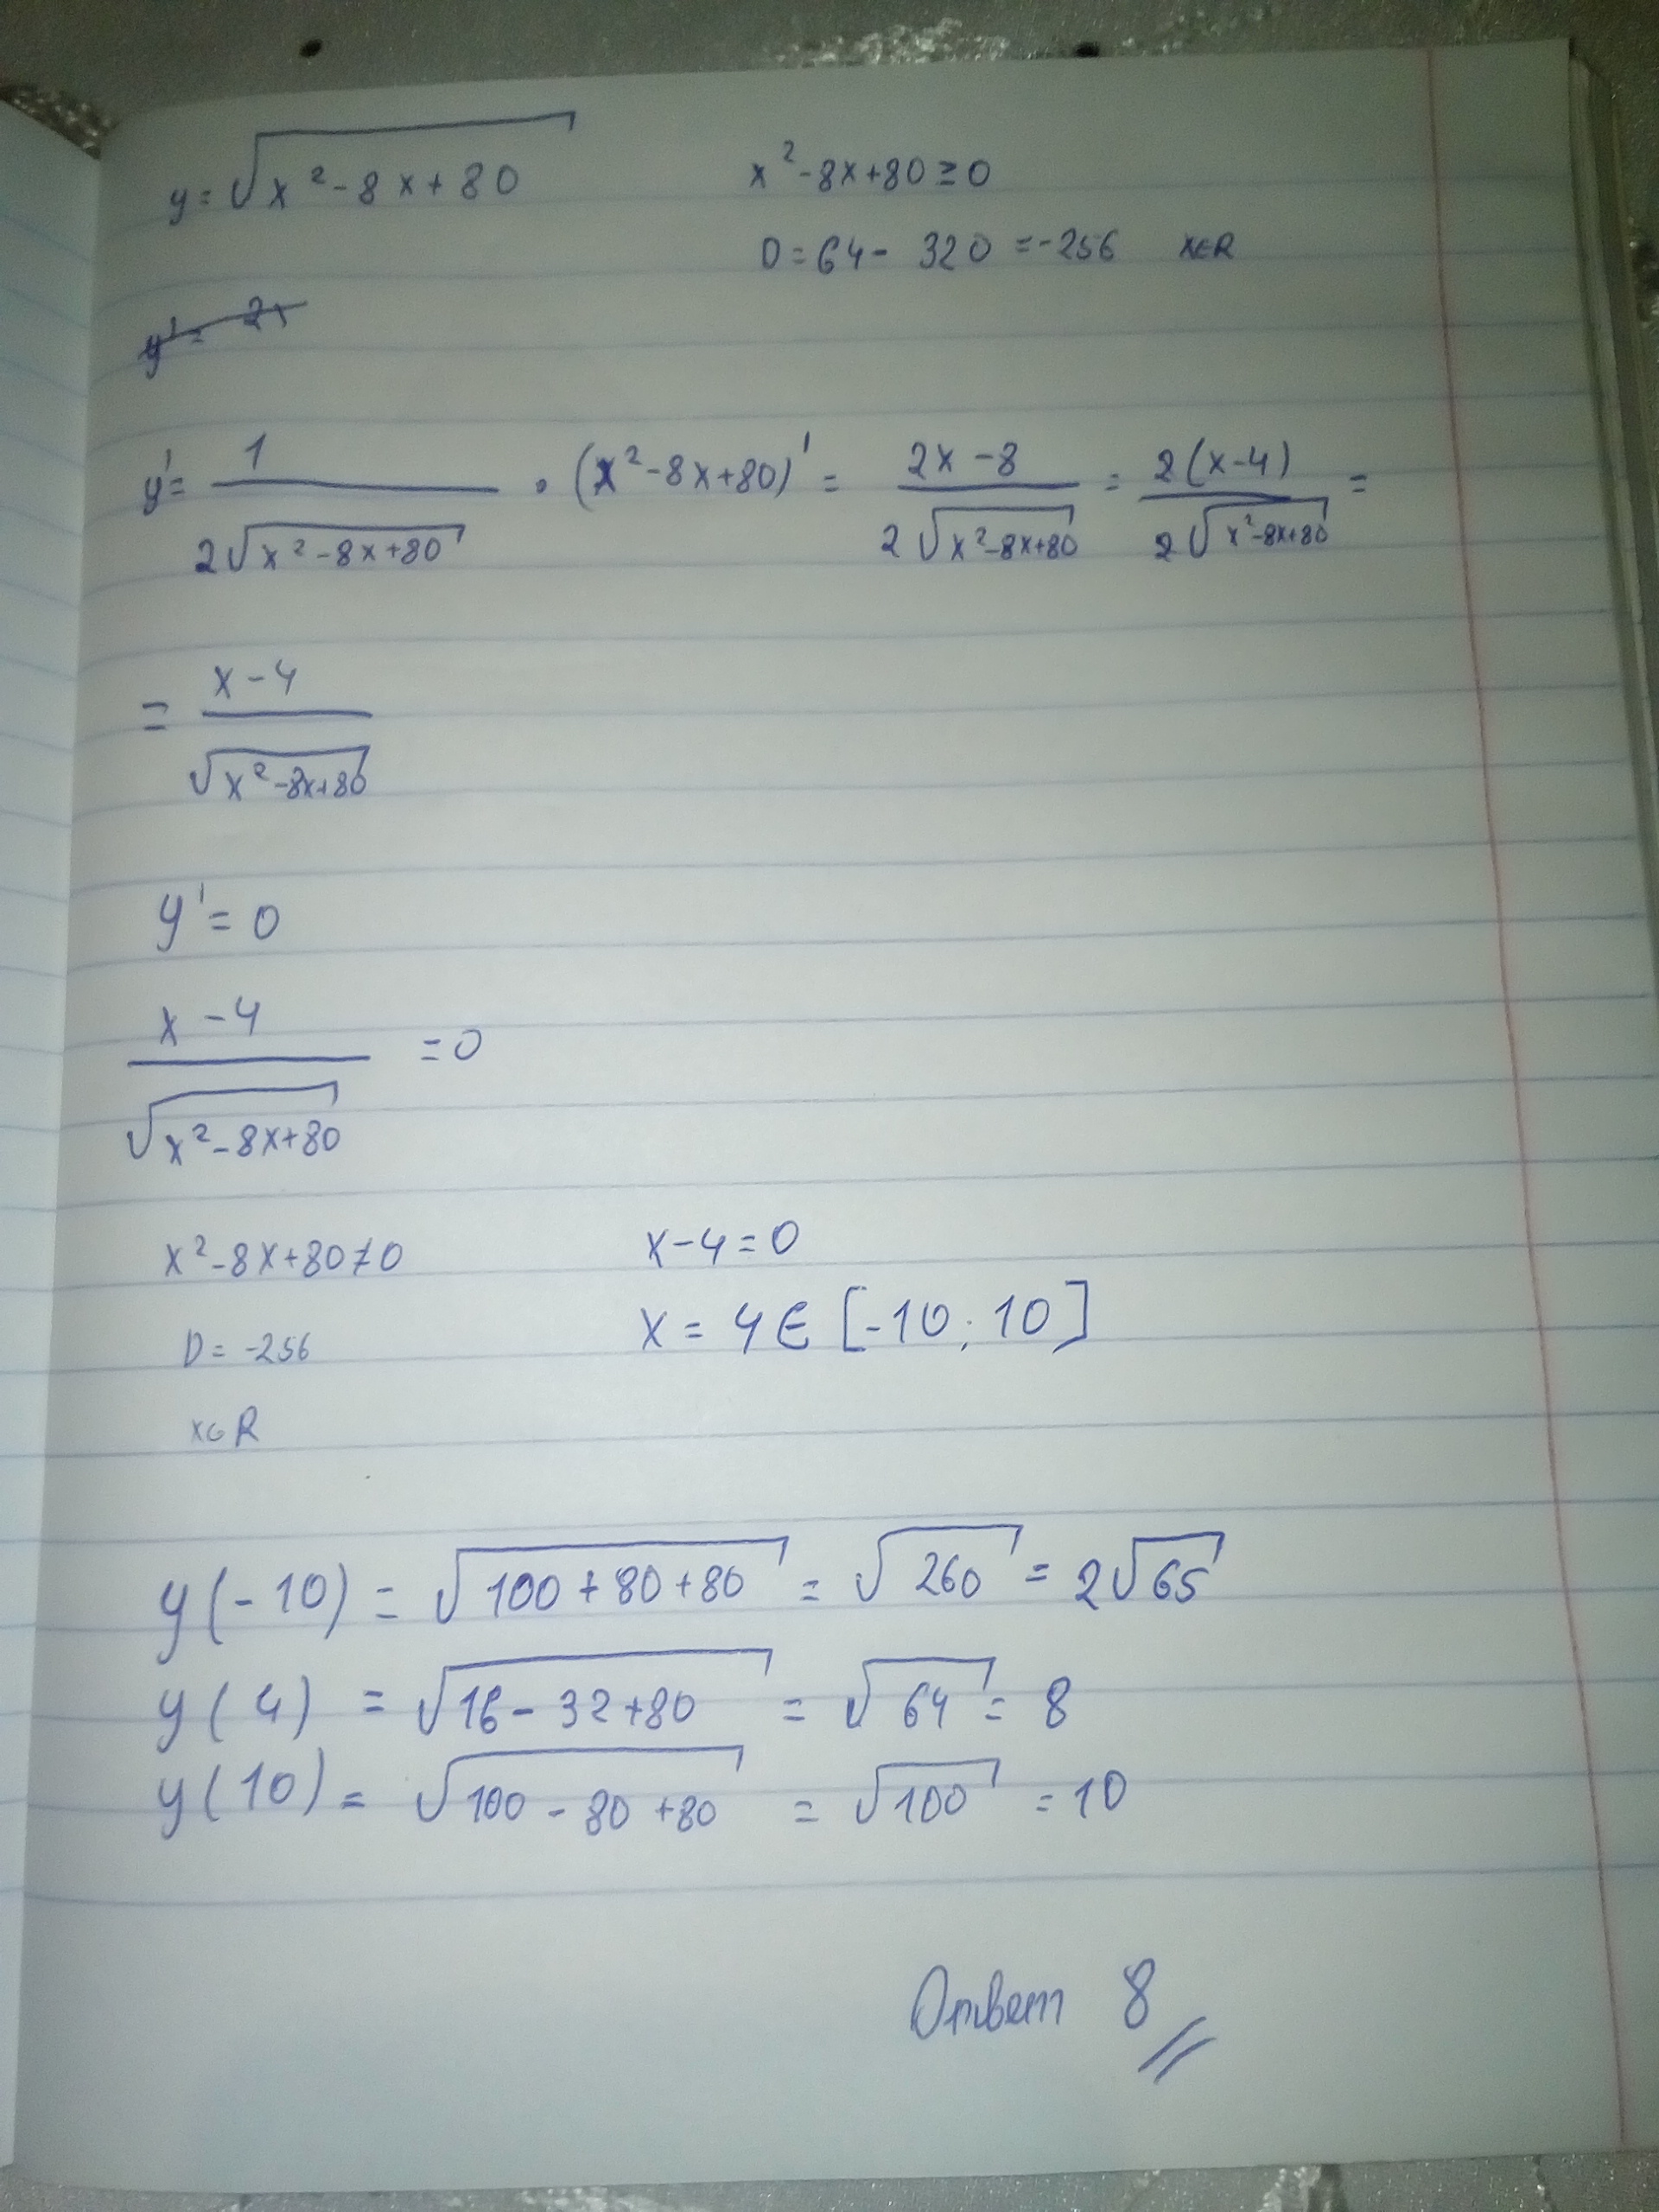 y = √(x² - 8x + 80)    x² - 8x + 80 ≥ 0
D = 64 - 320 = -256    x∈R
y' = 2x
y' = 1 / (2√(x² - 8x + 80)) · (x² - 8x + 80)' = (2x - 8) / (2√(x² - 8x + 80)) = 2(x - 4) / (2√(x² - 8x + 80)) =
= (x - 4) / √(x² - 8x + 80)
y' = 0
(x - 4) / √(x² - 8x + 80) = 0
x² - 8x + 80 ≠ 0    x - 4 = 0
D = -256    x = 4 ∈ [-10; 10]
x∈R
y(-10) = √(100 + 80 + 80) = √260 = 2√65
y(4) = √(16 - 32 + 80) = √64 = 8
y(10) = √(100 - 80 + 80) = √100 = 10
Ответ 8